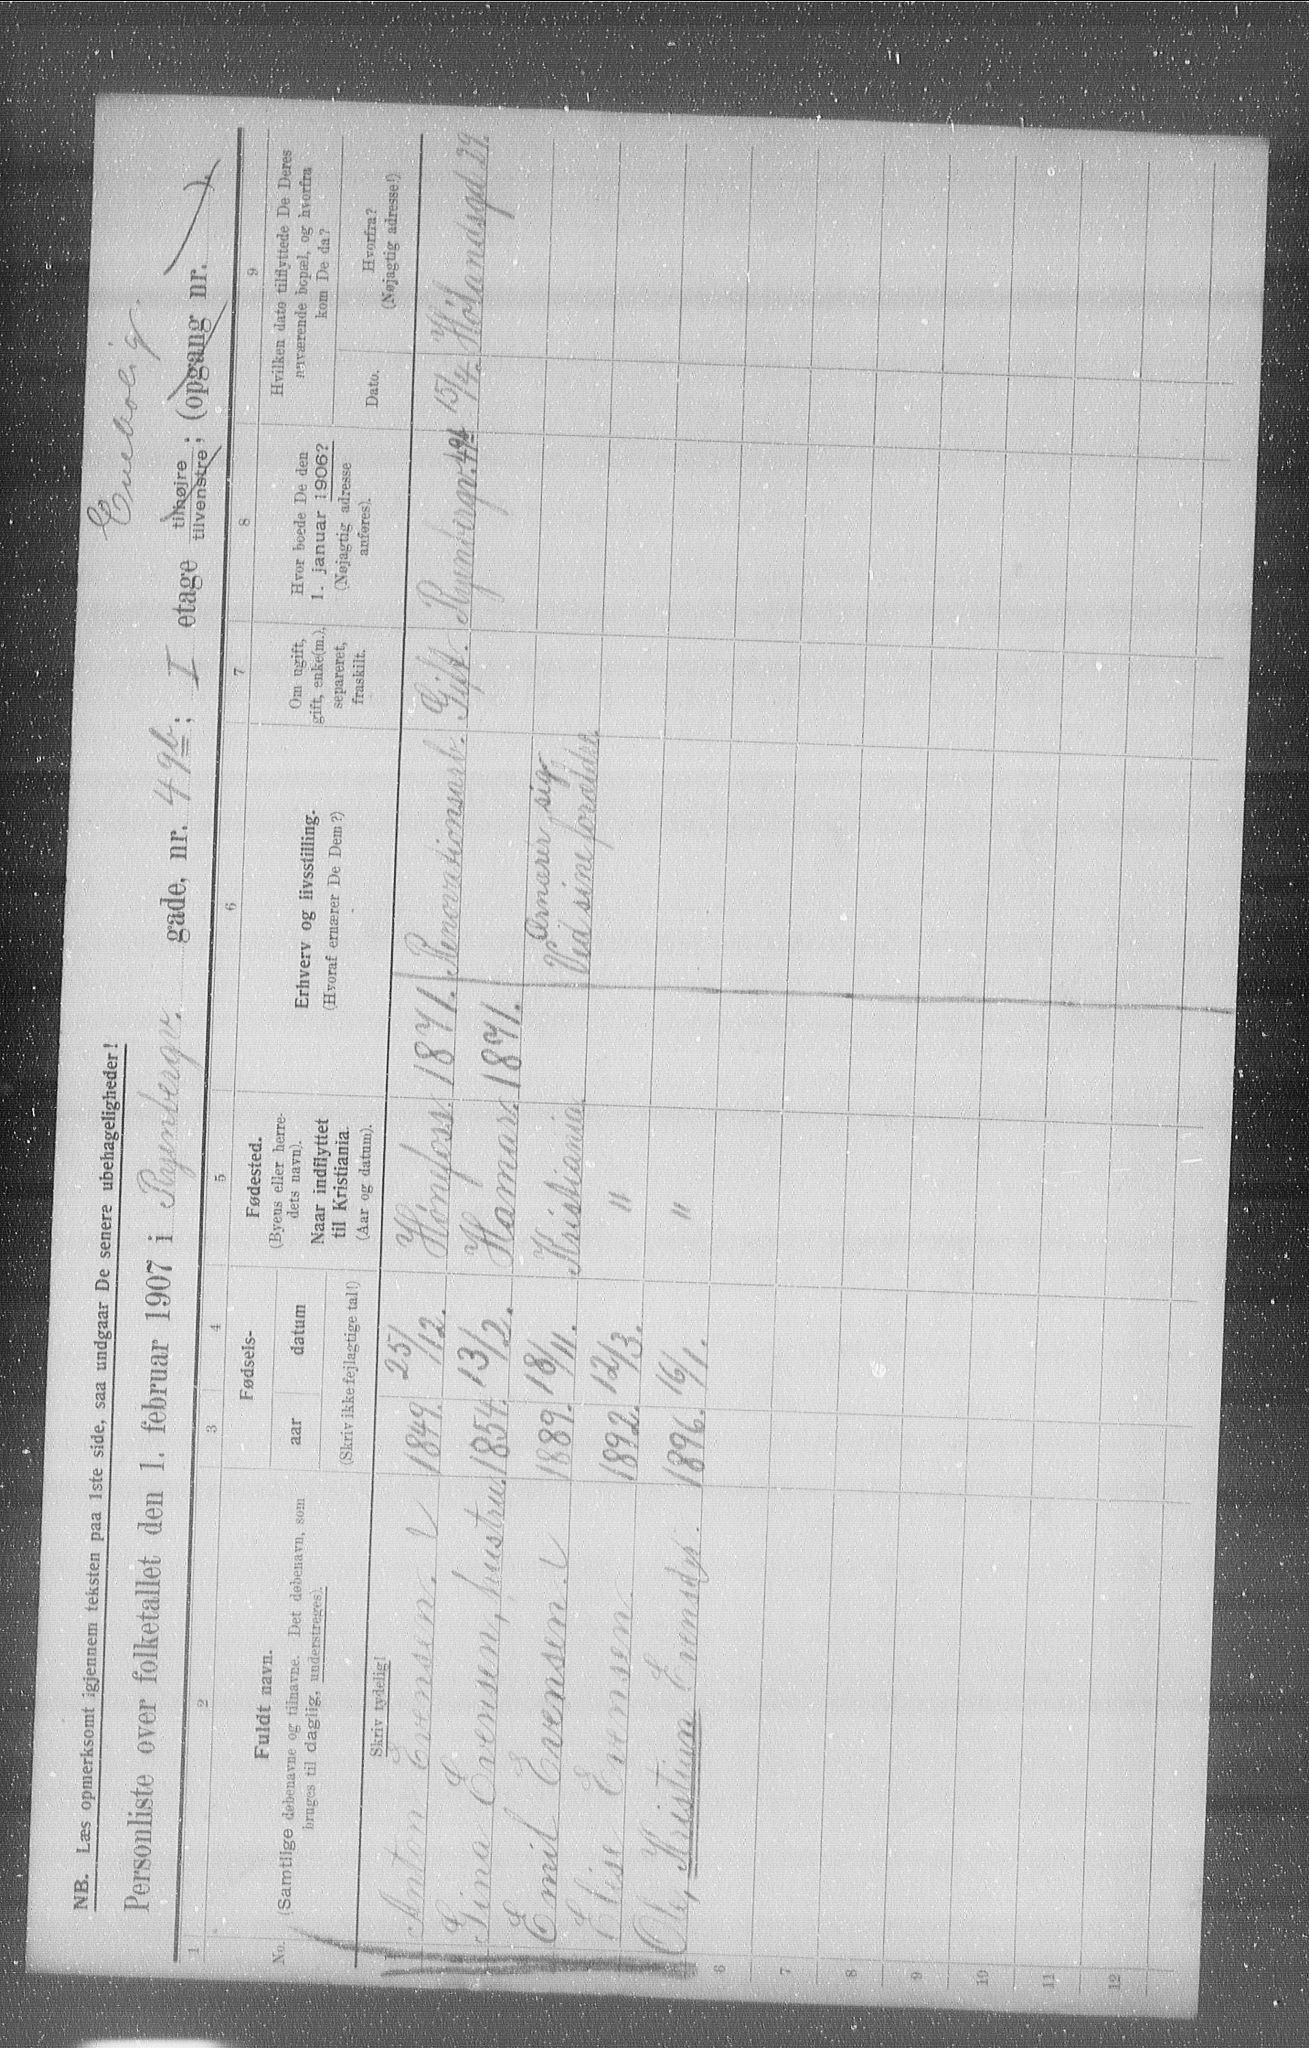 NB. Læs opmerksomt igjennem teksten paa 1ste side, saa undgaar De senere ubehageligheder!
Enebolig.
Personliste over folketallet den 1. februar 1907 i Ryenbergv. gade, nr. 49b; I etage tilhøjre tilvenstre; (opgang nr. ).
1 2 3 4 5 6 7 8 9
No.
Fuldt navn.
(Samtlige døbenavne og tilnavne. Det døbenavn, som
bruges til daglig, understreges).
Skriv tydelig!
Fødsels-
aar datum
(Skriv ikke fejlagtige tal!)
Fødested.
(Byens eller herre-
dets navn).
Naar indflyttet
til Kristiania.
(Aar og datum).
Erhverv og livsstilling.
(Hvoraf ernærer De Dem?)
Om ugift,
gift, enke(m.),
separeret,
fraskilt.
Hvor boede De den
1. januar 1906?
(Nøjagtig adresse
anføres).
Hvilken dato tilflyttede De Deres
nuværende bopæl, og hvorfra
kom De da?
Dato.
Hvorfra?
(Nøjagtig adresse!)
Anton Evensen. 1849. 25/12. Hønefoss. 1871. Renovationsarb. Gift. Ryenbergv. 49b 15/4. Hölandsgd 29.
Gina Evensen, hustru. 1854. 13/2. Hamar. 1871.
Emil Evensen. 1889. 18/11. Kristiania. Ernærer sig
Ved sine forældre.
Elise Evensen. 1892. 12/3. "
Ole, Kristian Evensen. 1896. 16/1. "
6
7
8
9
10
11
12